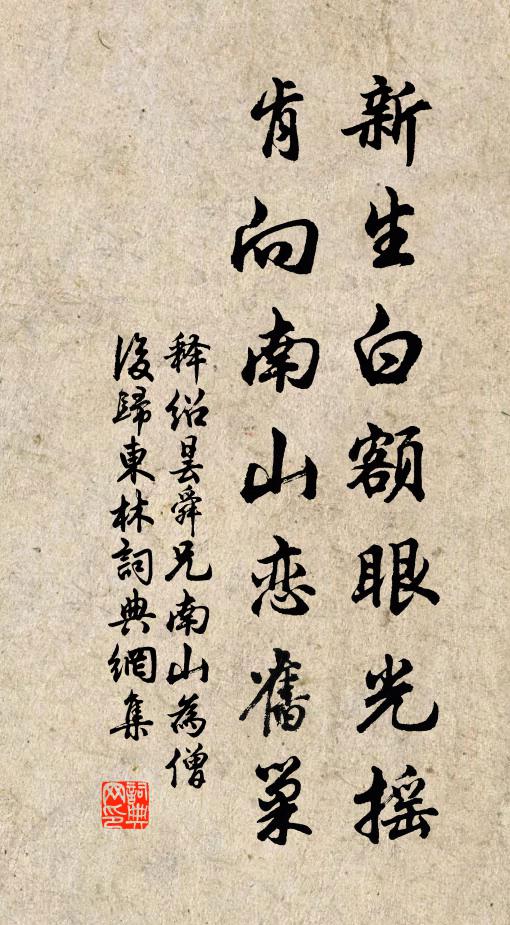 新生白額眼光摇
肯向南山恋舊巢
释绍昙舜兄南山為僧
後歸東林詞典網集
詞典
网印